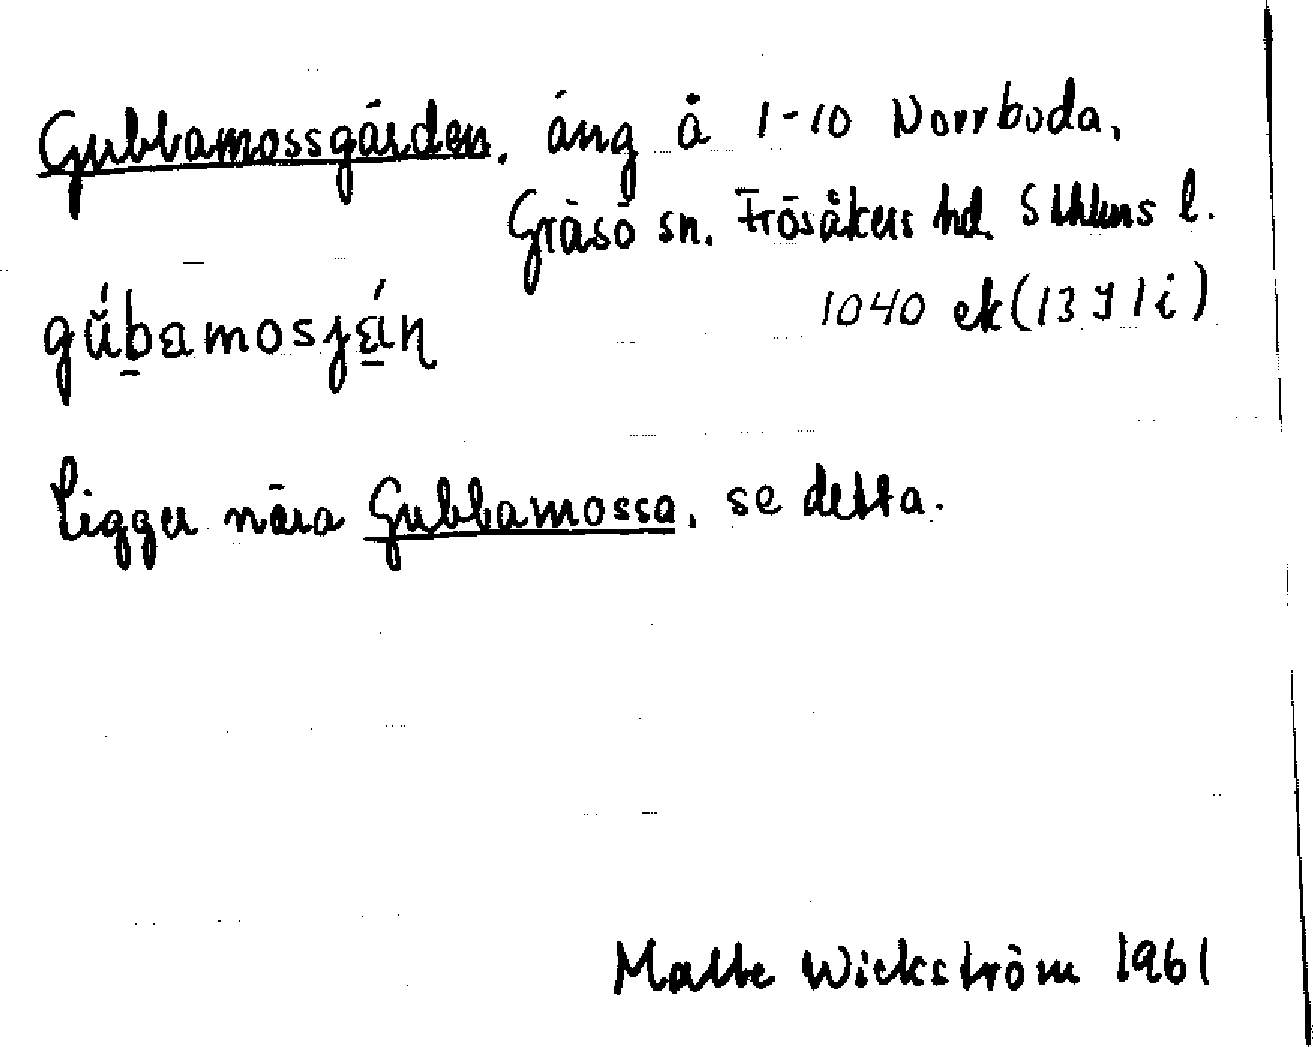 Gubbamossgärden, äng å 1-10 Norrboda,
Gräsö sn. Frösåkers hd. Sthlms l.
1040 ek (13 I 1 i)
gúbamosjæ̀ɳ
Ligger nära Gubbamossa, se detta.
Malte Wickström 1961